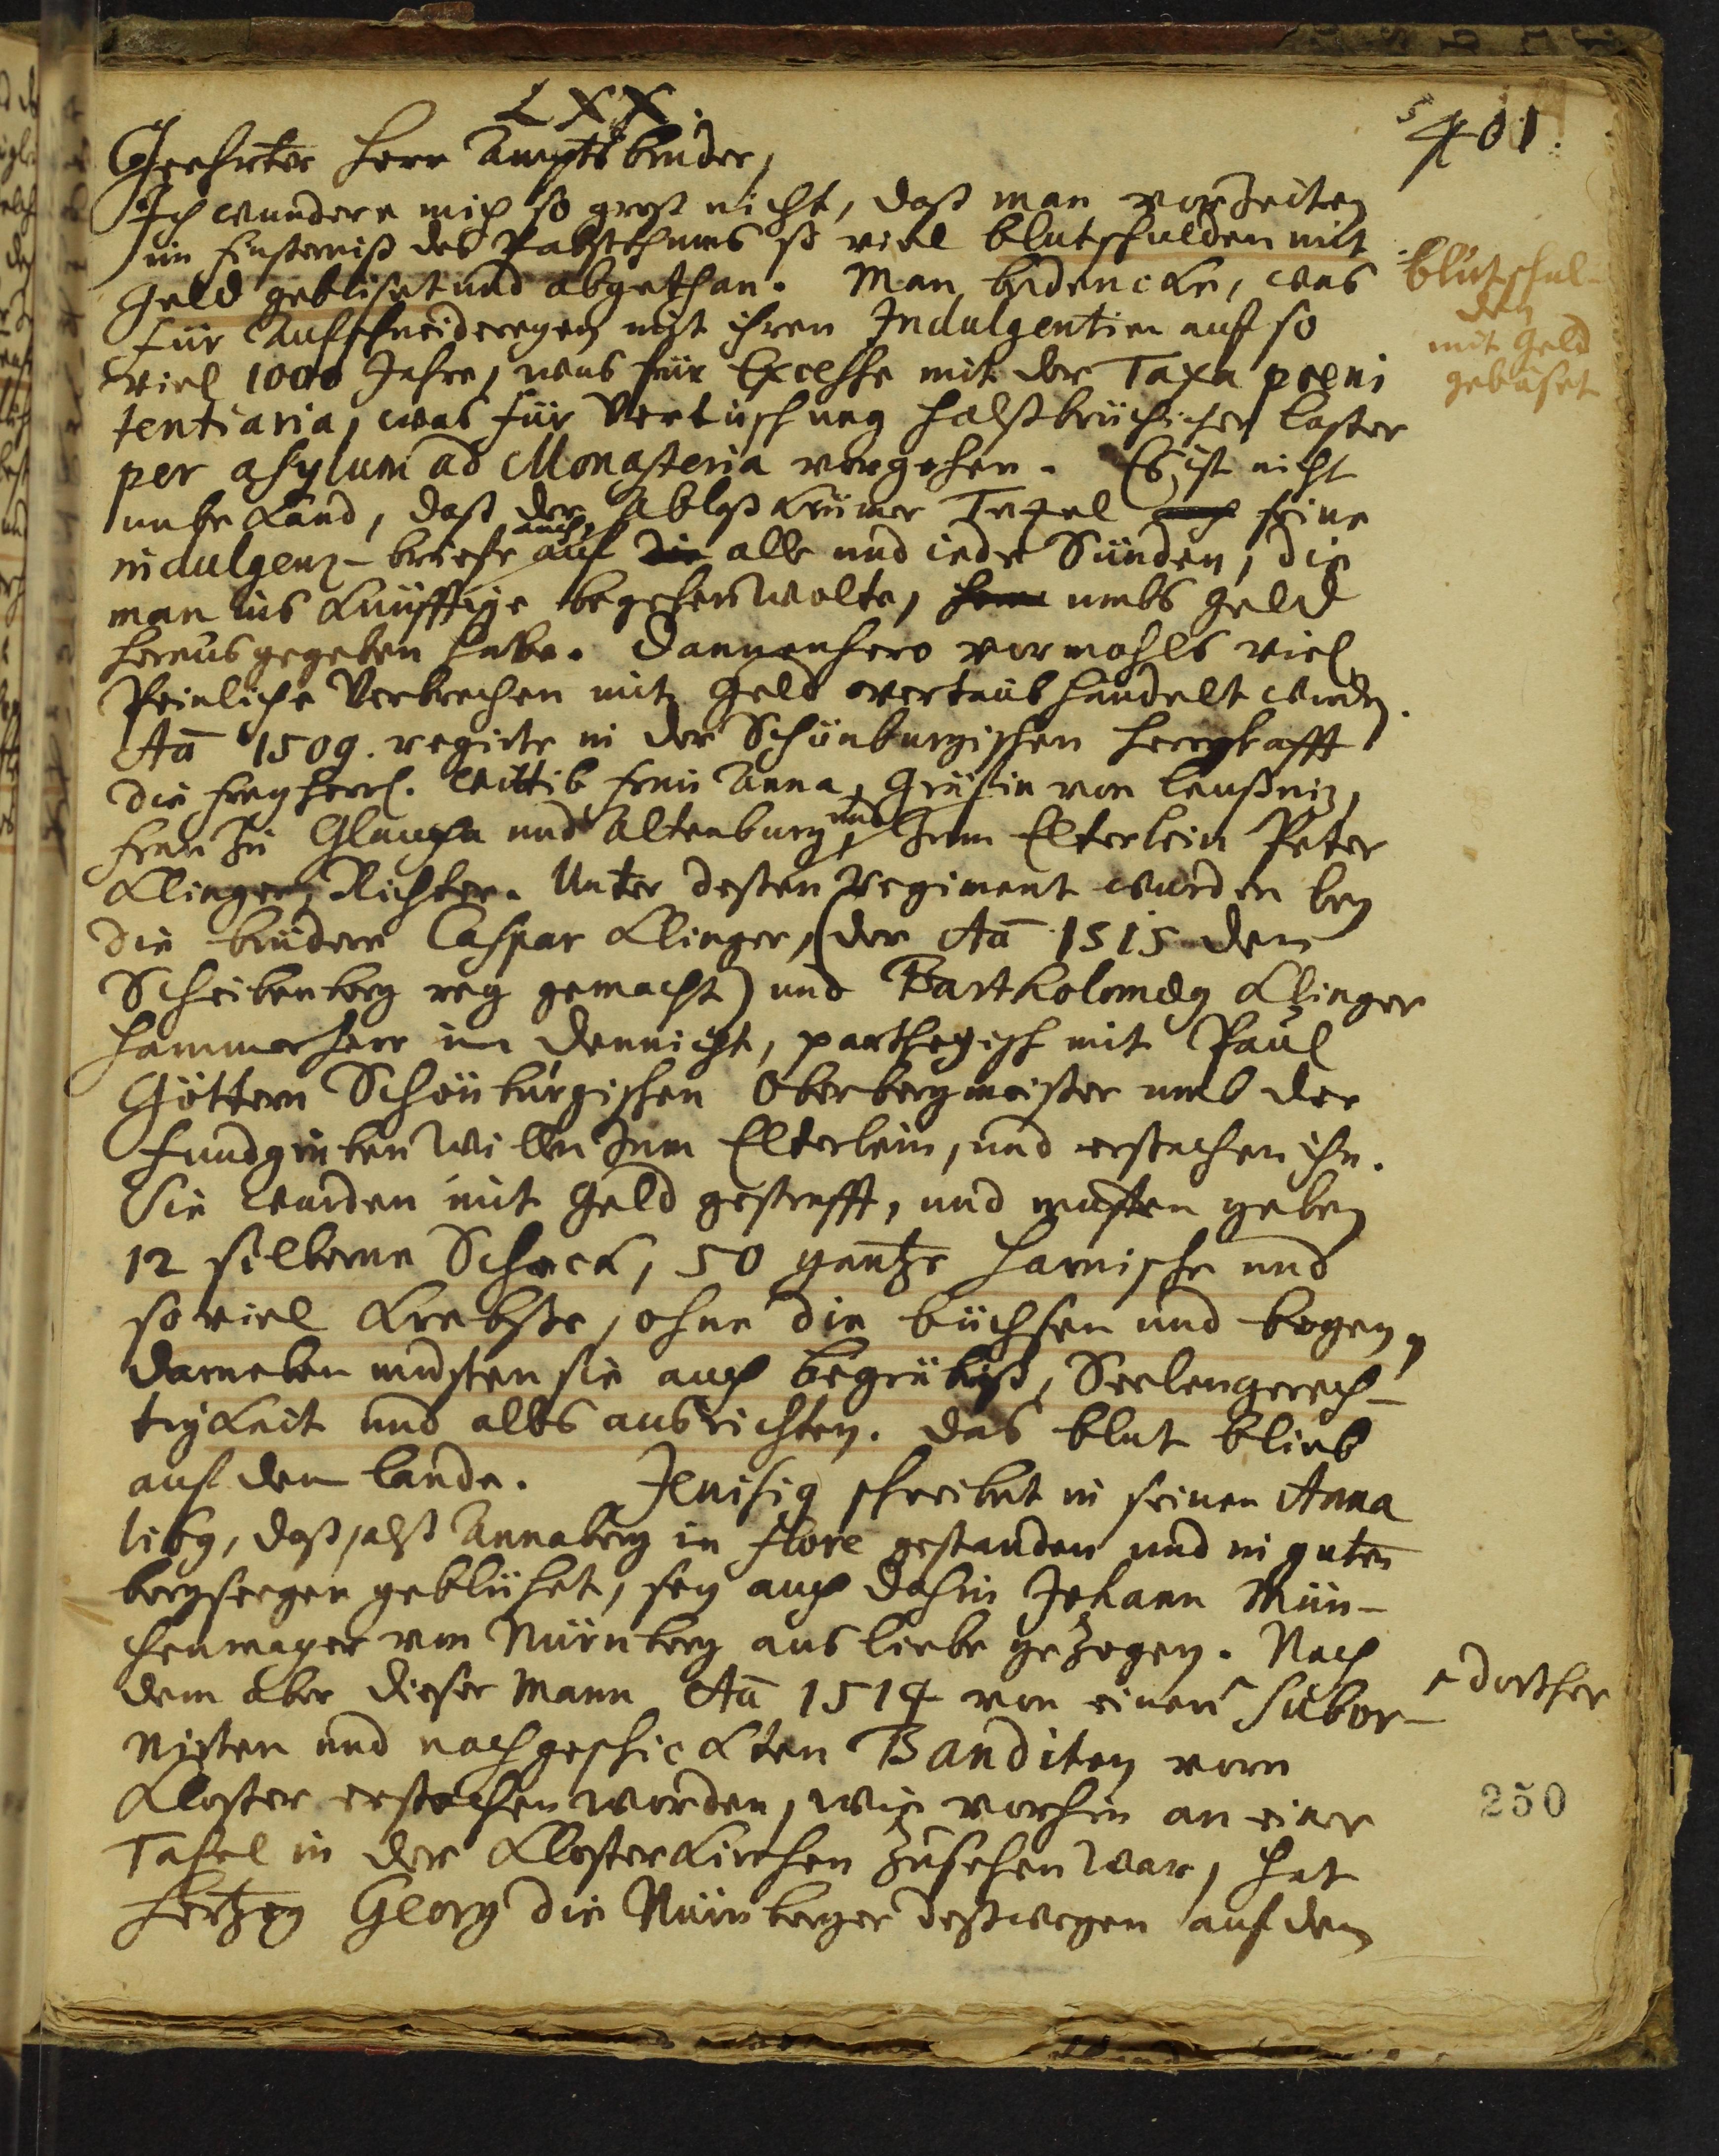 LXX.
501.
Geehrter Herr Amptsbruder,
Ich wundere mich so groß nicht, daß man vorzeiten
im Finsterniß des Pabstthums so viel blutschulden mit
Geld gebüset und abgethan. Man bedencke, was
für Aufschneidereyen mit ihren Indulgentien auf so
viel 1000 Jahre, was für Excesse mit der Taxa poeni
tentiaria, was für Vertuschung halßbrüchicher laster
per asylum ad Monasteria vorgehen. Es ist nicht
unbekand, daß der Ablaß Krämer Tezel seine
indulgenz-briefe auch auf alle und iede Sünden, die
man ins Künfftige begehen wolte, umbs Geld
heraus gegeben habe. Dannenhero vormahls viel
Peinliche Verbrechen mit Geld vertaub handelt wurden.
Aō 1509. regirte in der Schönburgischen Herrschafft
die freyherrl. Wittib frau Anna, Gräfin von Leußniz,
frau zu Glaucha und Altenburg, und zum Elterlein Peter
Klinger, Richter. Unter dessen Regiment wurden bey
die brüdere Caspar Klinger, (der Aō 1515 den
Scheibenberg reg gemacht) und Bartholomäy Klinger
Hammerherr im Dennicht, partheyisch mit Paul
Göttern Schönburgischen Oberbergmeister umb der
fundgruben willen zum Elterlein, und erstachen ihn.
Sie wurden mit Geld gestrafft, und musten geben
12 silberne Schock, 50 gantze Harnische und
so viel Krebsse, ohne die büchsen und bogen,
darneben musten sie auch begräbniß, Seelengerech-
tigkeit und alles ausrichten. Das blut blieb
auf dem lande. Jenisig schreibet in seinen Anna
libg, daß, alß Annaberg in flore gestanden und in guten
bergseegen geblühet, sey auch dahin Johann Mün-
chenmayer von Nürnberg aus liebe gezogen. Nach
dem aber dieser Mann Aō 1514 von einem dorther subor-
nirten und nachgeschickten Banditen vorn
Kloster erstochen worden, wie vorhin an einer
Tafel in der Klosterkirchen zusehen war, hat
Hertzog Georg die Nürnberger deßwegen auf dem
blutschul-
den
mit Geld
gebüset
250